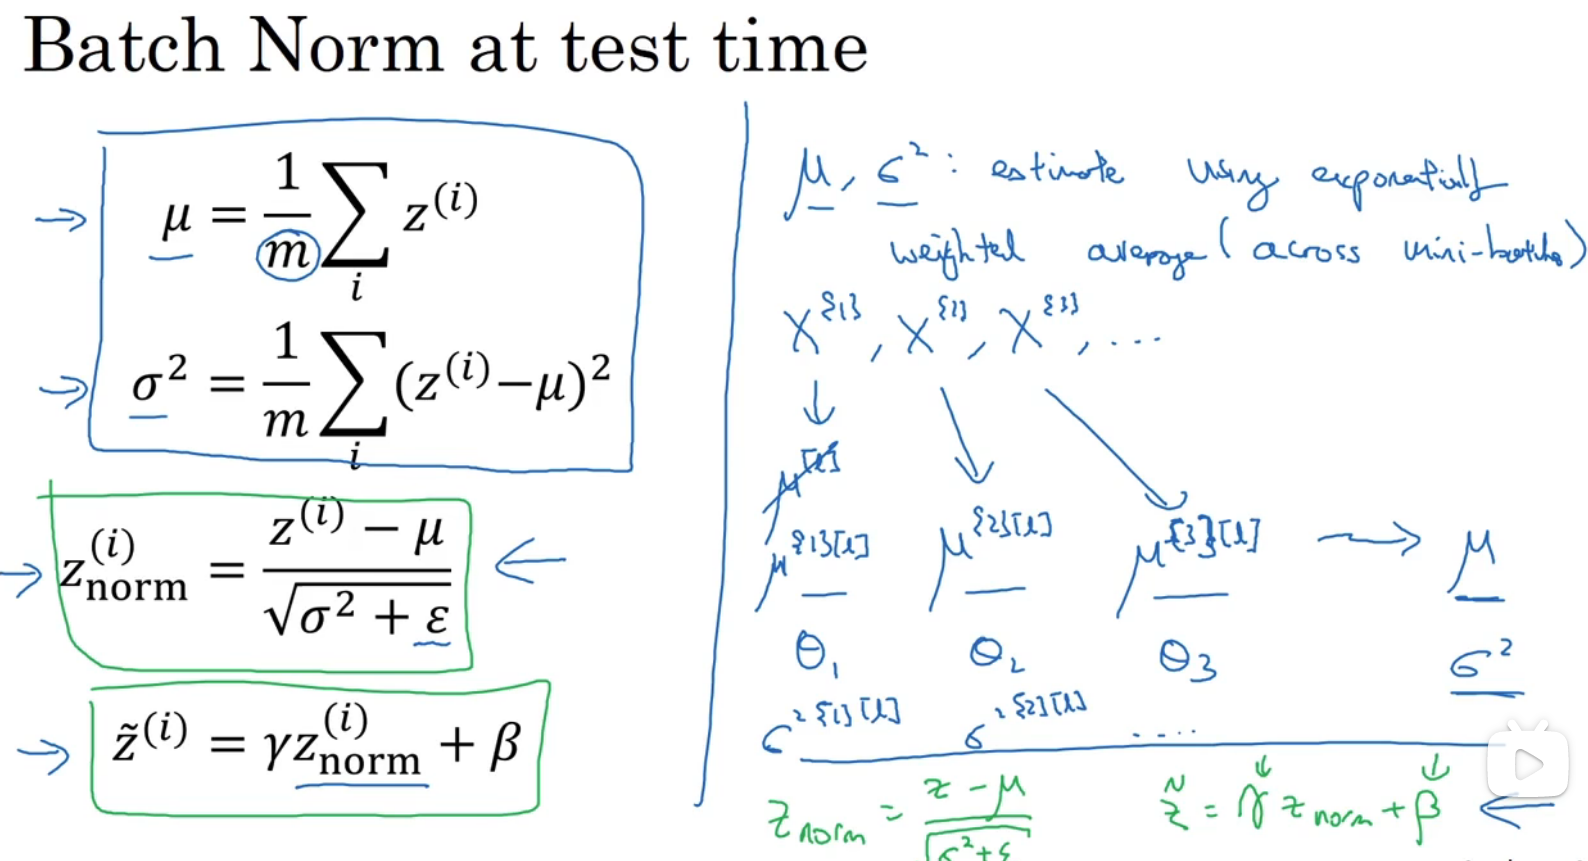 Batch Norm at test time
μ = 1/m ∑_i z^(i)
σ² = 1/m ∑_i (z^(i)−μ)²
z_norm^(i) = (z^(i) − μ)/√(σ² + ε)
z̃^(i) = γz_norm^(i) + β
μ, σ² : estimate using exponentially
weighted average (across mini-batches)
X^{1}, X^{2}, X^{3}, ...
μ^[l]
μ^{1}[l] μ^{2}[l] μ^{3}[l] → μ
θ₁ θ₂ θ₃ σ²
σ²^{1}[l] σ²^{2}[l] ....
z_norm = (z − μ)/√(σ²+ε) z̃ = γ z_norm + β